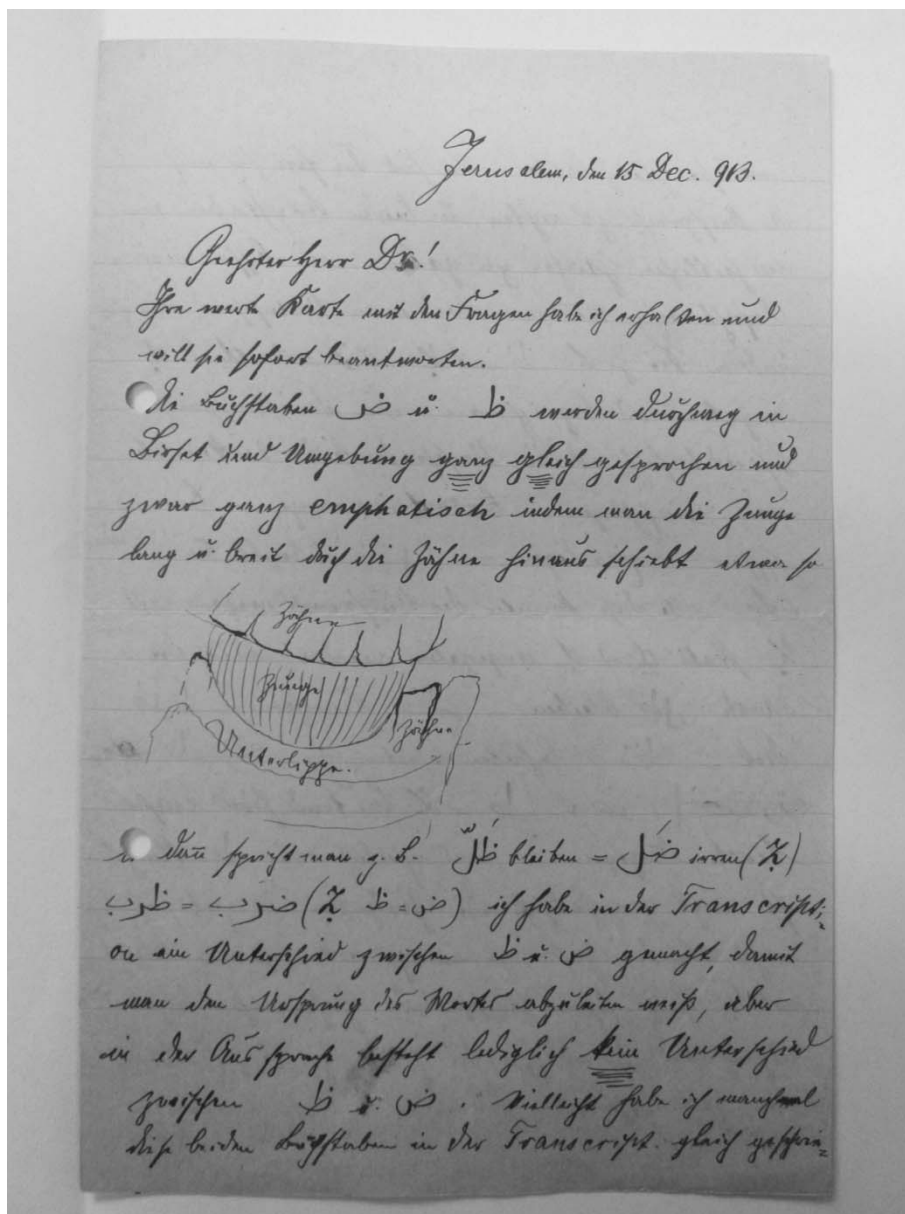 Jerusalem, den 15 Dec. 913.
Geehrter Herr Dr.!
Ihre werte Karte mit den Fragen habe ich erhalten und
will sie sofort beantworten.
Die Buchstaben ض u. ظ werden durchweg in
Birset und Umgebung ganz gleich gesprochen und
zwar ganz emphatisch indem man die Zunge
lang u. breit durch die Zähne hinaus schiebt etwa so
Zähne
Zunge
Zähne
Unterlippe.
u dann spricht man z. B. ظَلّ bleiben = ضَلّ irren (Ẓ)
ضرب = ظرب (Ẓ ض = ظ) ich habe in der Transcripti=
on ein Unterschied zwischen ض u. ظ gemacht, damit
man den Ursprung des Wortes abzuleiten weiß, aber
in der Aussprache besteht lediglich kein Unterschied
zwischen ض u. ظ. Vielleicht habe ich manchmal
diese beiden Buchstaben in der Transcript. gleich geschrie=